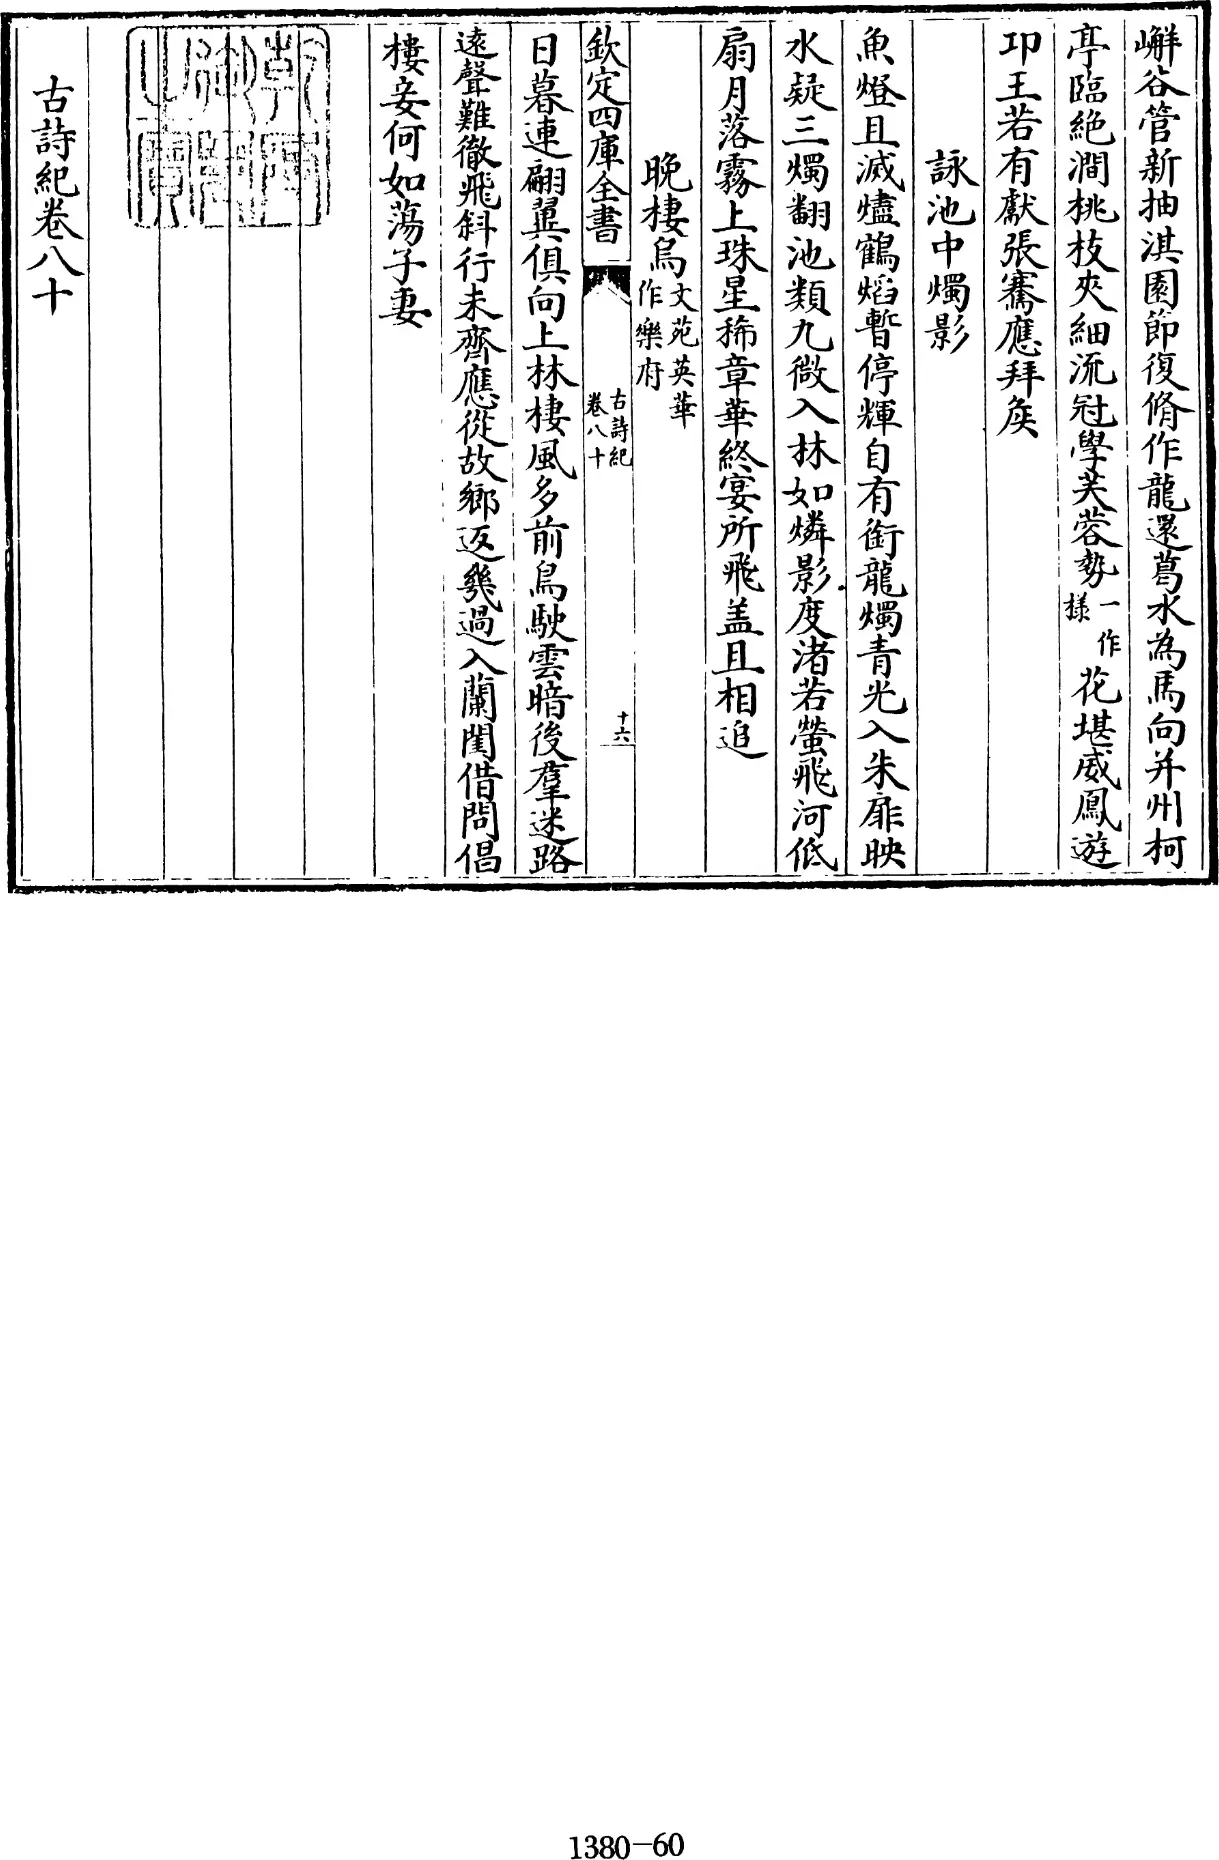 嶰谷管新抽淇園節復脩作龍還葛水為馬向并州柯
亭臨絶澗桃枝夾細流冠學芙蓉勢一作様花堪威鳳遊
卭王若有獻張騫應拜矦
詠池中燭影
魚燈且滅燼鶴熖暫停輝自有銜龍燭青光入朱扉映
水疑三燭翻池類九微入林如燐影度渚若螢飛河低
扇月落霧上珠星稀章華終宴所飛盖且相追
晚棲烏文苑英華作樂府
欽定四庫全書
古詩紀
卷八十
十六
日暮連翩翼俱向上林棲風多前鳥駛雲暗後羣迷路
遠聲難徹飛斜行未齊應從故鄉返幾過入蘭閨借問倡
樓妾何如蕩子妻
古詩紀卷八十
1380-60